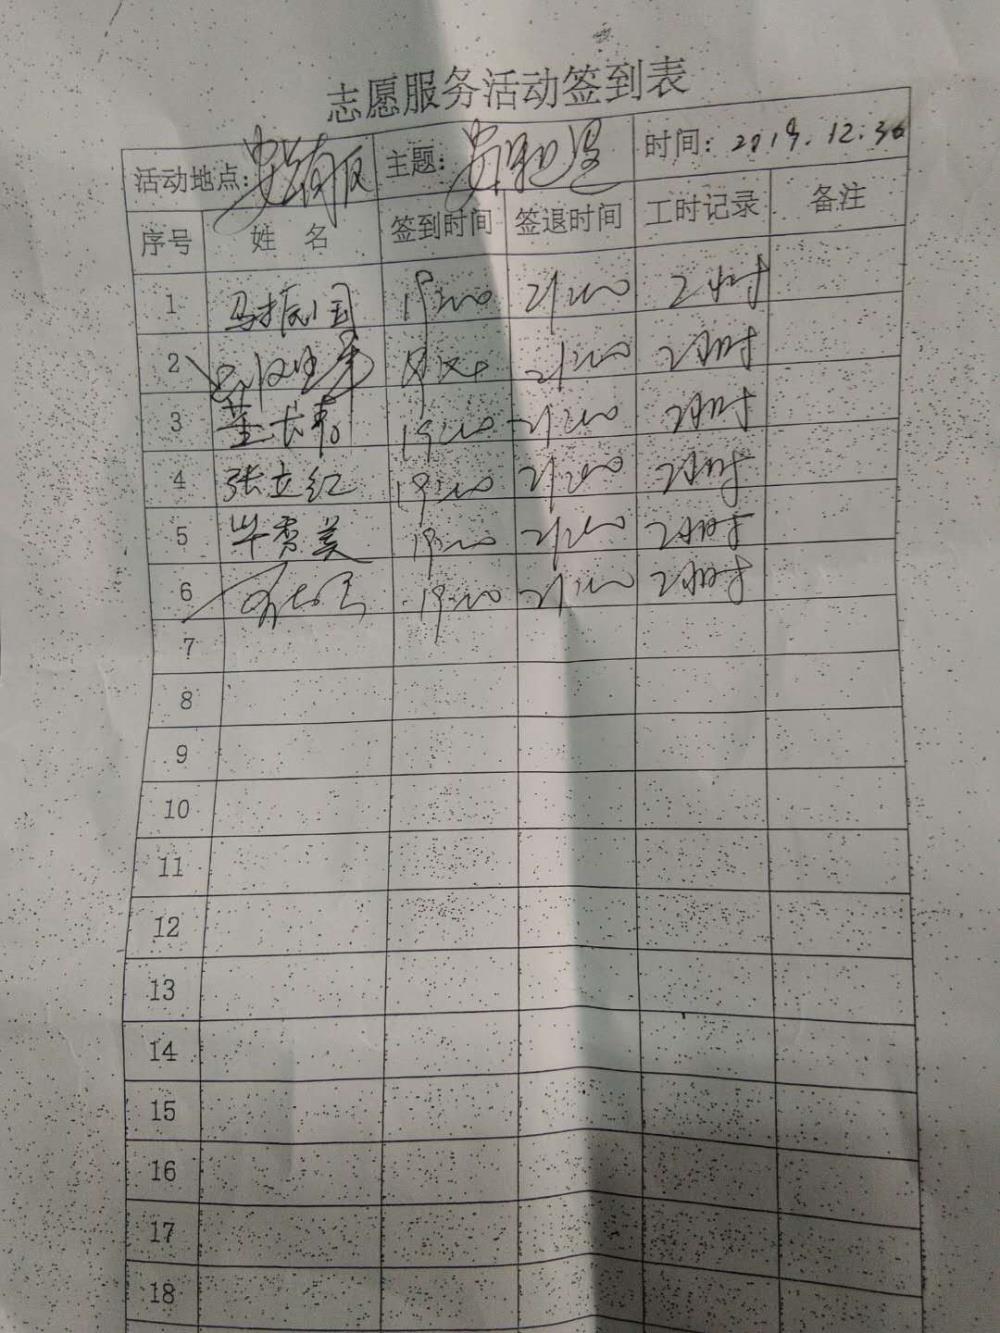 志愿服务活动签到表
活动地点: 主题: 时间: 2019.12.30
序号 姓名 签到时间 签退时间 工时记录 备注
1 马振国 19:00 21:00 2小时
2 21:00 2小时
3 董长春 19:00 21:00 2小时
4 张立红 19:00 21:00 2小时
5 毕秀美 19:00 21:00 2小时
6 19:00 21:00 2小时
7
8
9
10
11
12
13
14
15
16
17
18